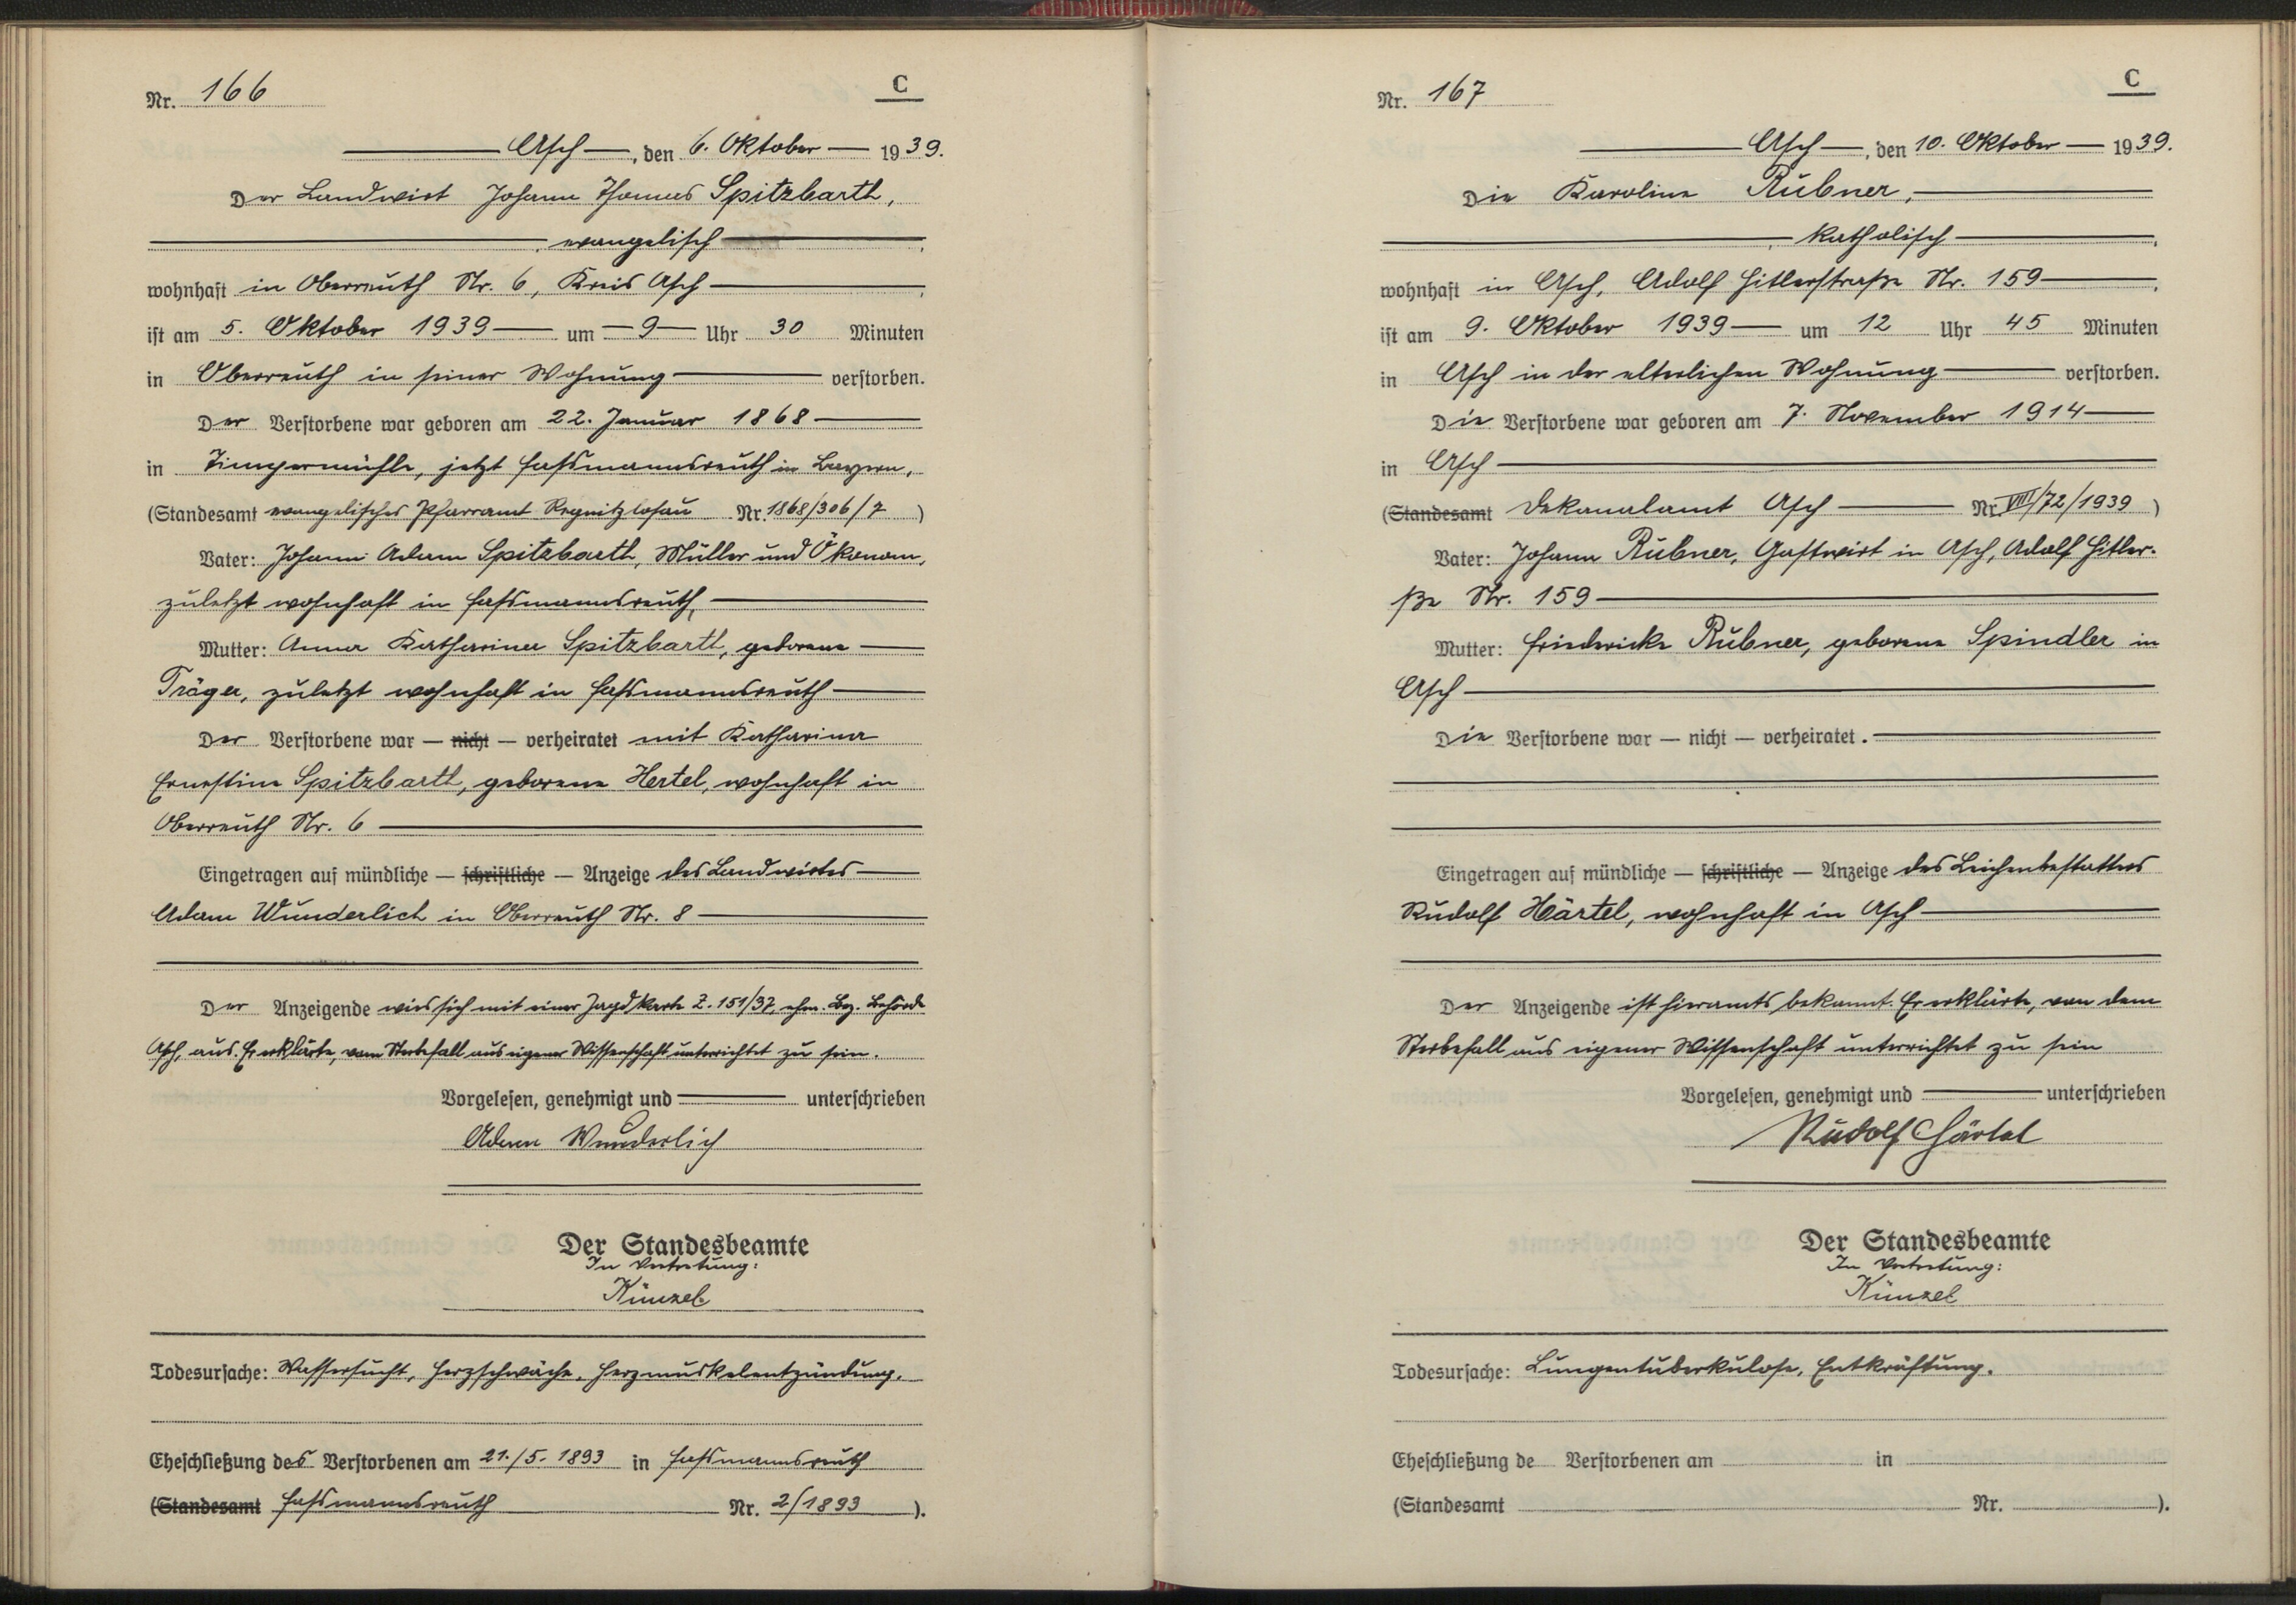 Nr. 166
C
Asch, den 6. Oktober 1939.
Der Landwirt Johann Thomas Spitzbarth,
evangelisch
wohnhaft in Oberreuth Nr. 6, Kreis Asch
ist am 5. Oktober 1939 um 9 Uhr 30 Minuten
in Oberreuth in seiner Wohnung verstorben.
Der Verstorbene war geboren am 22. Januar 1868
in Timpermühle, jetzt Fassmannsreuth in Bayern,
(Standesamt evangelisches Pfarramt Regnitzlosau Nr. 1868/306/7)
Vater: Johann Adam Spitzbarth, Müller und Ökonom,
zuletzt wohnhaft in Fassmannsreuth,
Mutter: Anna Katharina Spitzbarth, geborene
Träger, zuletzt wohnhaft in Fassmannsreuth
Der Verstorbene war — nicht — verheiratet mit Katharina
Ernestine Spitzbarth, geborene Hertel, wohnhaft in
Oberreuth Nr. 6
Eingetragen auf mündliche — schriftliche — Anzeige des Landwirtes
Adam Wunderlich in Oberreuth Nr. 8
Der Anzeigende wies sich mit einer Jagdkarte Z. 151/37, ehm. Bez. Behörde
Asch, aus. Er erklärte, vom Sterbefall aus eigener Wissenschaft unterrichtet zu sein.
Vorgelesen, genehmigt und unterschrieben
Adam Wunderlich
Der Standesbeamte
In Vertretung:
Künzel
Todesursache: Wassersucht, Herzschwäche, Herzmuskelentzündung.
Eheschließung des Verstorbenen am 21./5. 1893 in Fassmannsreuth
(Standesamt Fassmannsreuth Nr. 2/1893).
Nr. 167
C
Asch, den 10. Oktober 1939.
Die Karoline Rubner,
katholisch
wohnhaft in Asch, Adolf Hitlerstraße Nr. 159
ist am 9. Oktober 1939 um 12 Uhr 45 Minuten
in Asch in der elterlichen Wohnung verstorben.
Die Verstorbene war geboren am 7. November 1914
in Asch
(Standesamt Dekanalamt Asch Nr. VIII/72/1939)
Vater: Johann Rubner, Gastwirt in Asch, Adolf Hitler-
ße Nr. 159
Mutter: Friedericke Rubner, geborene Spindler in
Asch
Die Verstorbene war — nicht — verheiratet.
Eingetragen auf mündliche — schriftliche — Anzeige des Leichenbestatters
Rudolf Härtel, wohnhaft in Asch
Der Anzeigende ist hieramts bekannt. Er erklärte, von dem
Sterbefall aus eigener Wissenschaft unterrichtet zu sein
Vorgelesen, genehmigt und unterschrieben
Rudolf Härtel
Der Standesbeamte
In Vertretung:
Künzel
Todesursache: Lungentuberkulose, Entkräftung.
Eheschließung de Verstorbenen am in
(Standesamt Nr. ).